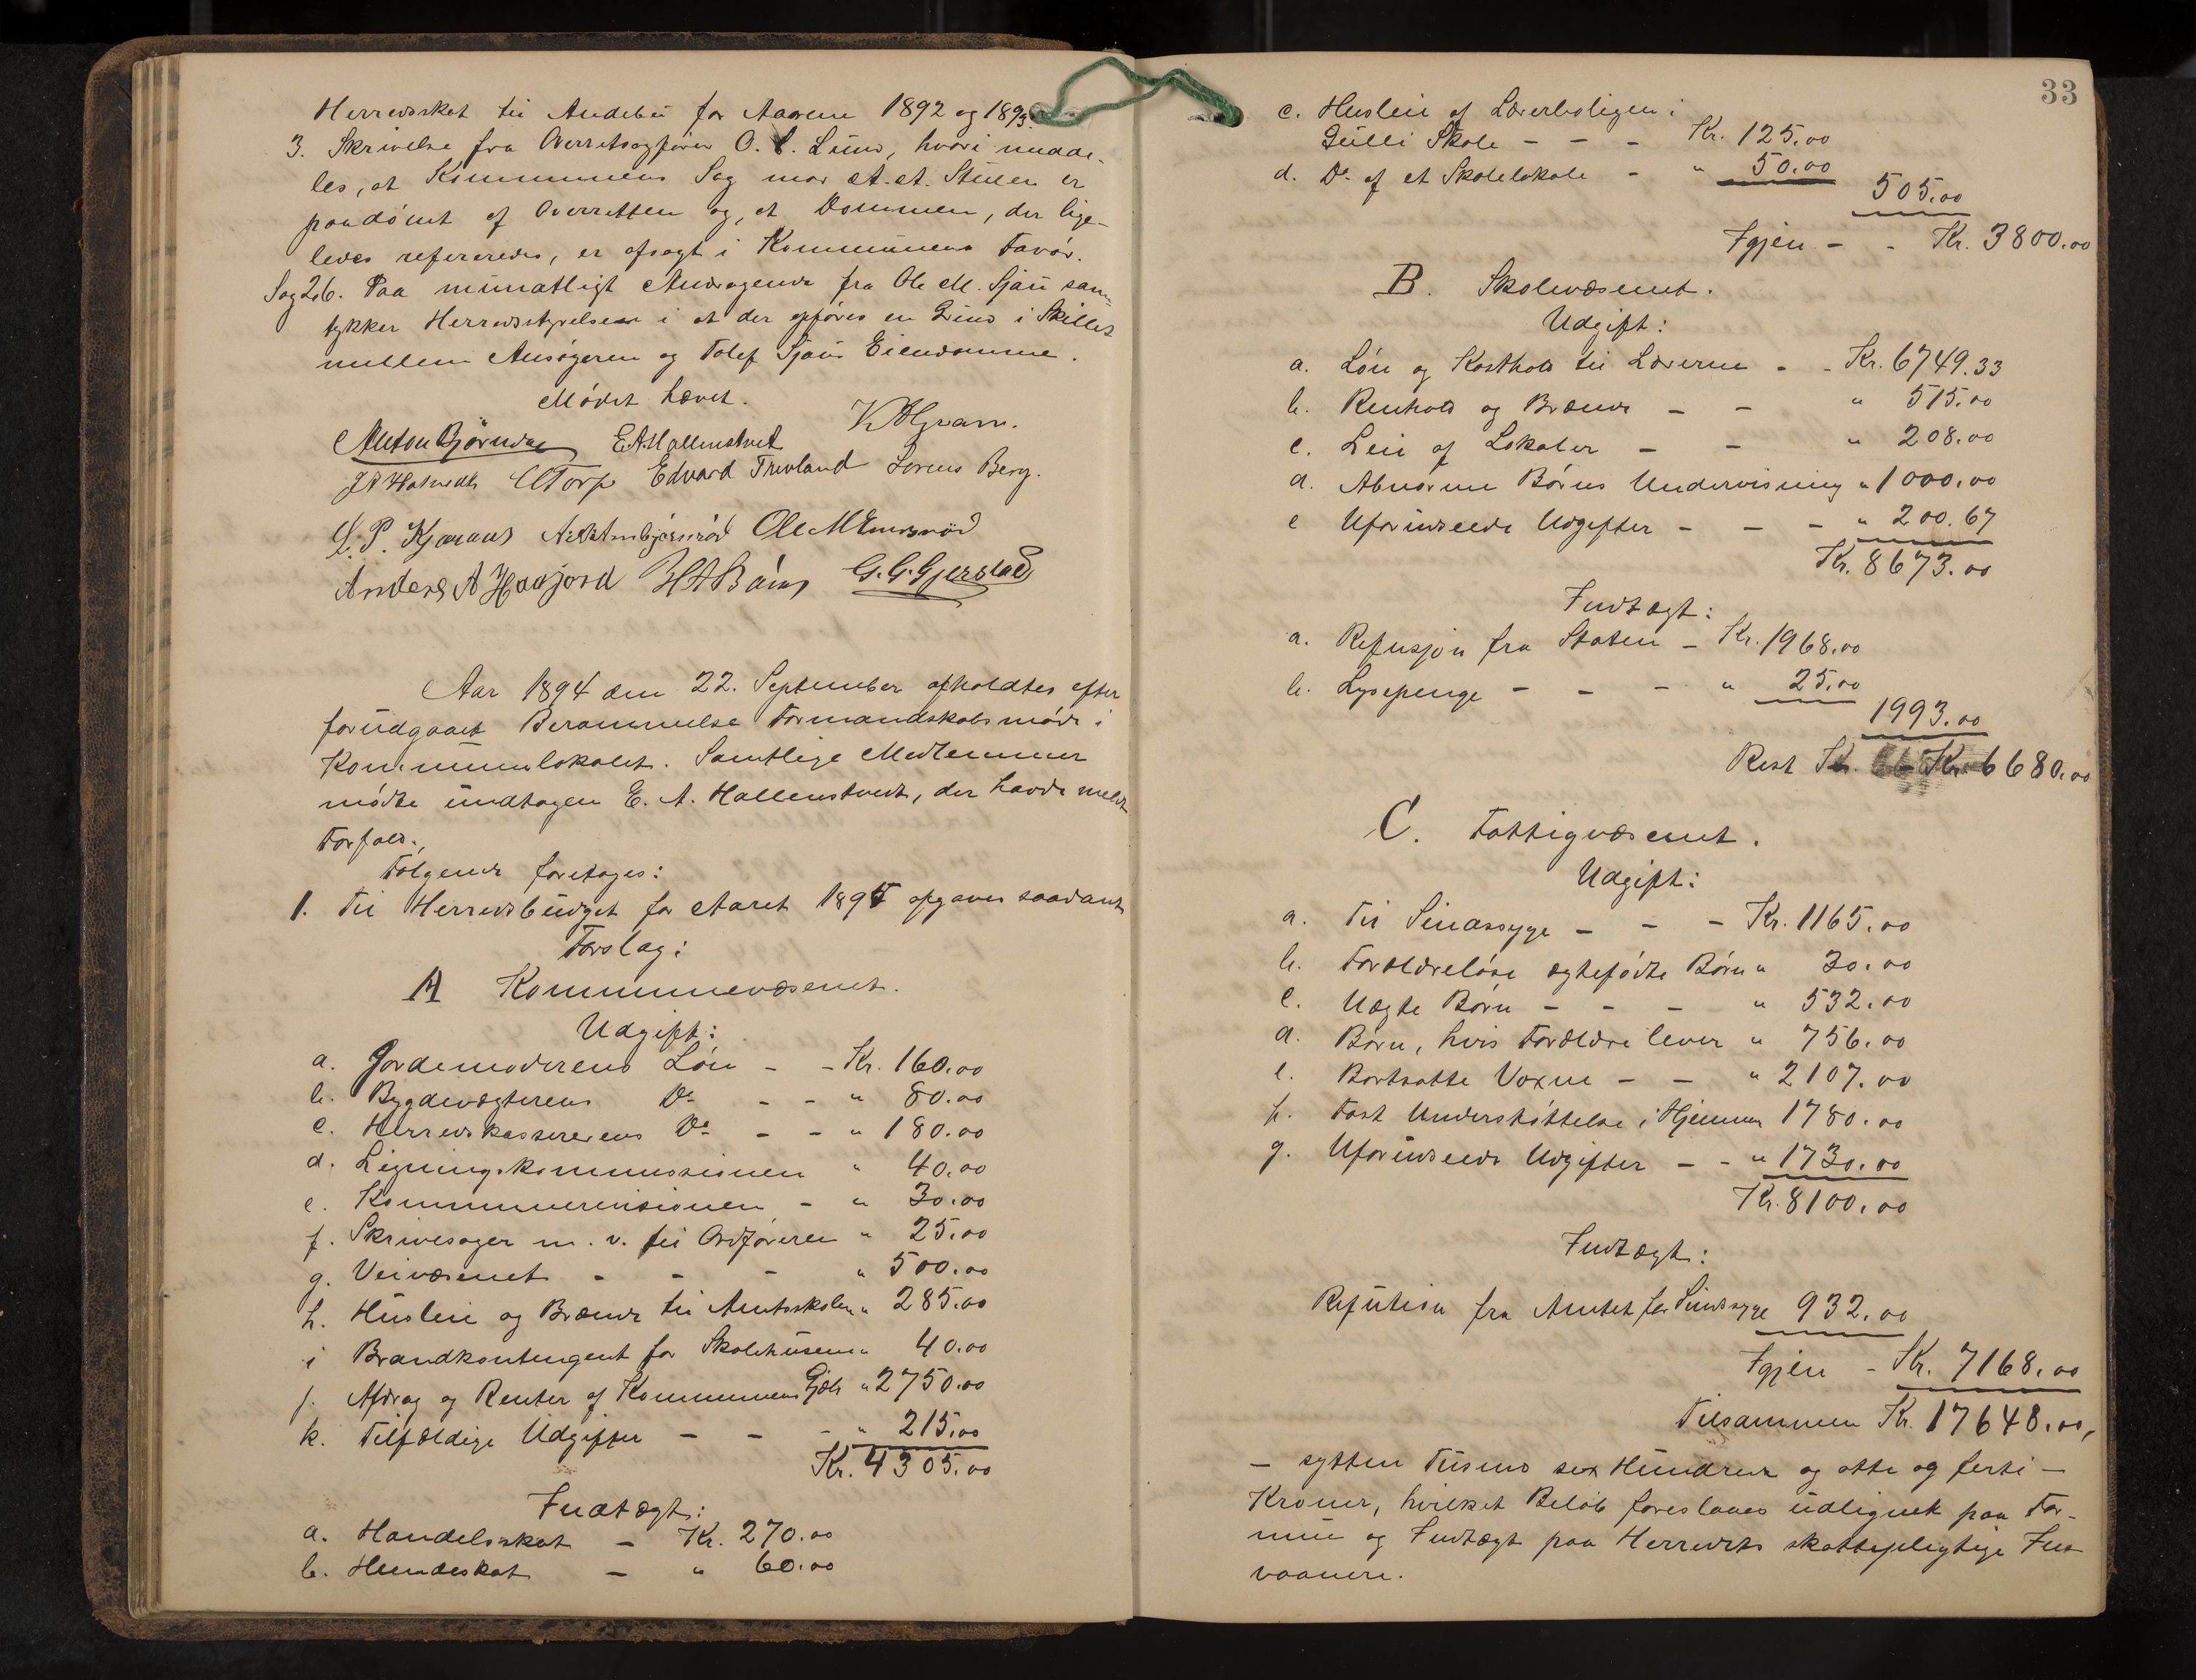 Herredsskat til Andebu for Aarene 1892 og 1893.
3. Skrivelse fra Overretssagfører O. C. Lund, hvori medde-
les, at Kommunens Sag mod A. A. Stulen er
paadømt af Overretten og, at Dommen, der lige-
ledes refereredes, er afsagt i Kommunens Favør.
Sag 26. Paa mundtligt Andragende fra Ole M. Sjau sam-
tykker Herredsstyrelsen i at der opføres en Grind i Skillet
mellem Ansøgeren og Tolef Sjaus Eiendomme.
Mødet hævet.
Anton Bjørndal E A Hallenstvet K A Gram.
J A Hotvedt C Torp Edvard Trevland Lorens Berg.
L. P. Kjæraas Nils Arnbjørnrød Ole M Emmerød
Anders A Haugjord H A Bårnes G. G. Gjerstad
Aar 1894 den 22. September afholdtes efter
forudgaaet Berammelse Formandskabsmøde i
Kommunelokalet. Samtlige Medlemmer
mødte undtagen E. A. Hallenstvedt, der havde meldt
Forfald.
Følgende foretoges:
1. Til Herredsbudget for Aaret 1895 opgaves saadant
Forslag:
A Kommunevæsenet.
Udgift:
a. Jordemoderens Løn - - Kr. 160.00
b. Bygdevægterens Do - - " 80.00
c. Herredskassererens Do - - " 180.00
d. Ligningskommissionen " 40.00
e. Kommunerevisionen - " 30.00
f. Skrivesager m. v. til Ordføreren " 25.00
g. Veivæsenet - - - " 500.00
h. Husleie og Brænde til Amtsskolen " 285.00
i Brandkontingent for Skolehusene " 40.00
j. Afdrag og Renter af Kommunens Gjæld " 2750.00
k. Tilfældige Udgifter - - - " 215.00
Kr. 4305.00
Indtægt:
a. Handelsskat - Kr. 270.00
b. Hundeskat - " 60.00
33
c. Husleie af Lærerboligen i
Gulli Skole - - - Kr. 125.00
d. Do af et Skolelokale - " 50.00
505.00
Igjen - - Kr. 3800.00
B. Skolevæsenet.
Udgift:
a. Løn og Kosthold til Lærerne - - Kr. 6749.33
b. Renhold og Brænde - - " 515.00
c. Leie af Lokaler - - " 208.00
d. Abnorme Børns Undervisning " 1000.00
e Uforudseede Udgifter - - - " 200.67
Kr. 8673.00
Indtægt:
a. Refusjon fra Staten - Kr. 1968.00
b. Lysepenge - - - " 25.00
1993.00
Rest Kr. 6680.00
C. Fattigvæsenet.
Udgift:
a. Til Sindssyge - - - Kr. 1165.00
b. Forældreløse ægtefødte Børn " 30.00
c. Uægte Børn - - - " 532.00
d. Børn, hvis Forældre lever " 756.00
e. Bortsatte Voxne - - " 2107.00
f. Fast Understøttelse i Hjemmen 1780.00
g. Uforudseede Udgifter - - " 1730.00
Kr. 8100.00
Indtægt:
Refution fra Amtet for Sindssyge 932.00
Igjen - Kr. 7168.00
Tilsammen Kr. 17648.00,
- sytten Tusind sex Hundrede og otte og førti -
Kroner, hvilket Beløb foreslaaes udlignet paa For-
mue og Indtægt paa Herredets skattepligtige Ind
vaanere.